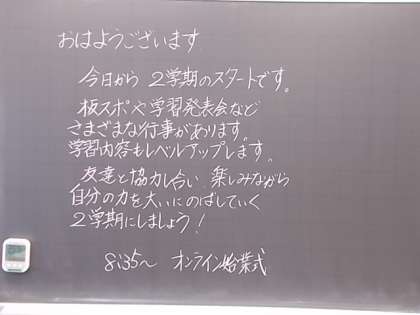 おはようございます
今日から 2学期のスタートです。
板スポや学習発表会など
さまざまな行事があります。
学習内容もレベルアップします。
友達と協力し合い 楽しみながら
自分の力を大いにのばしていく
2学期にしましょう!
8:35〜 オンライン始業式